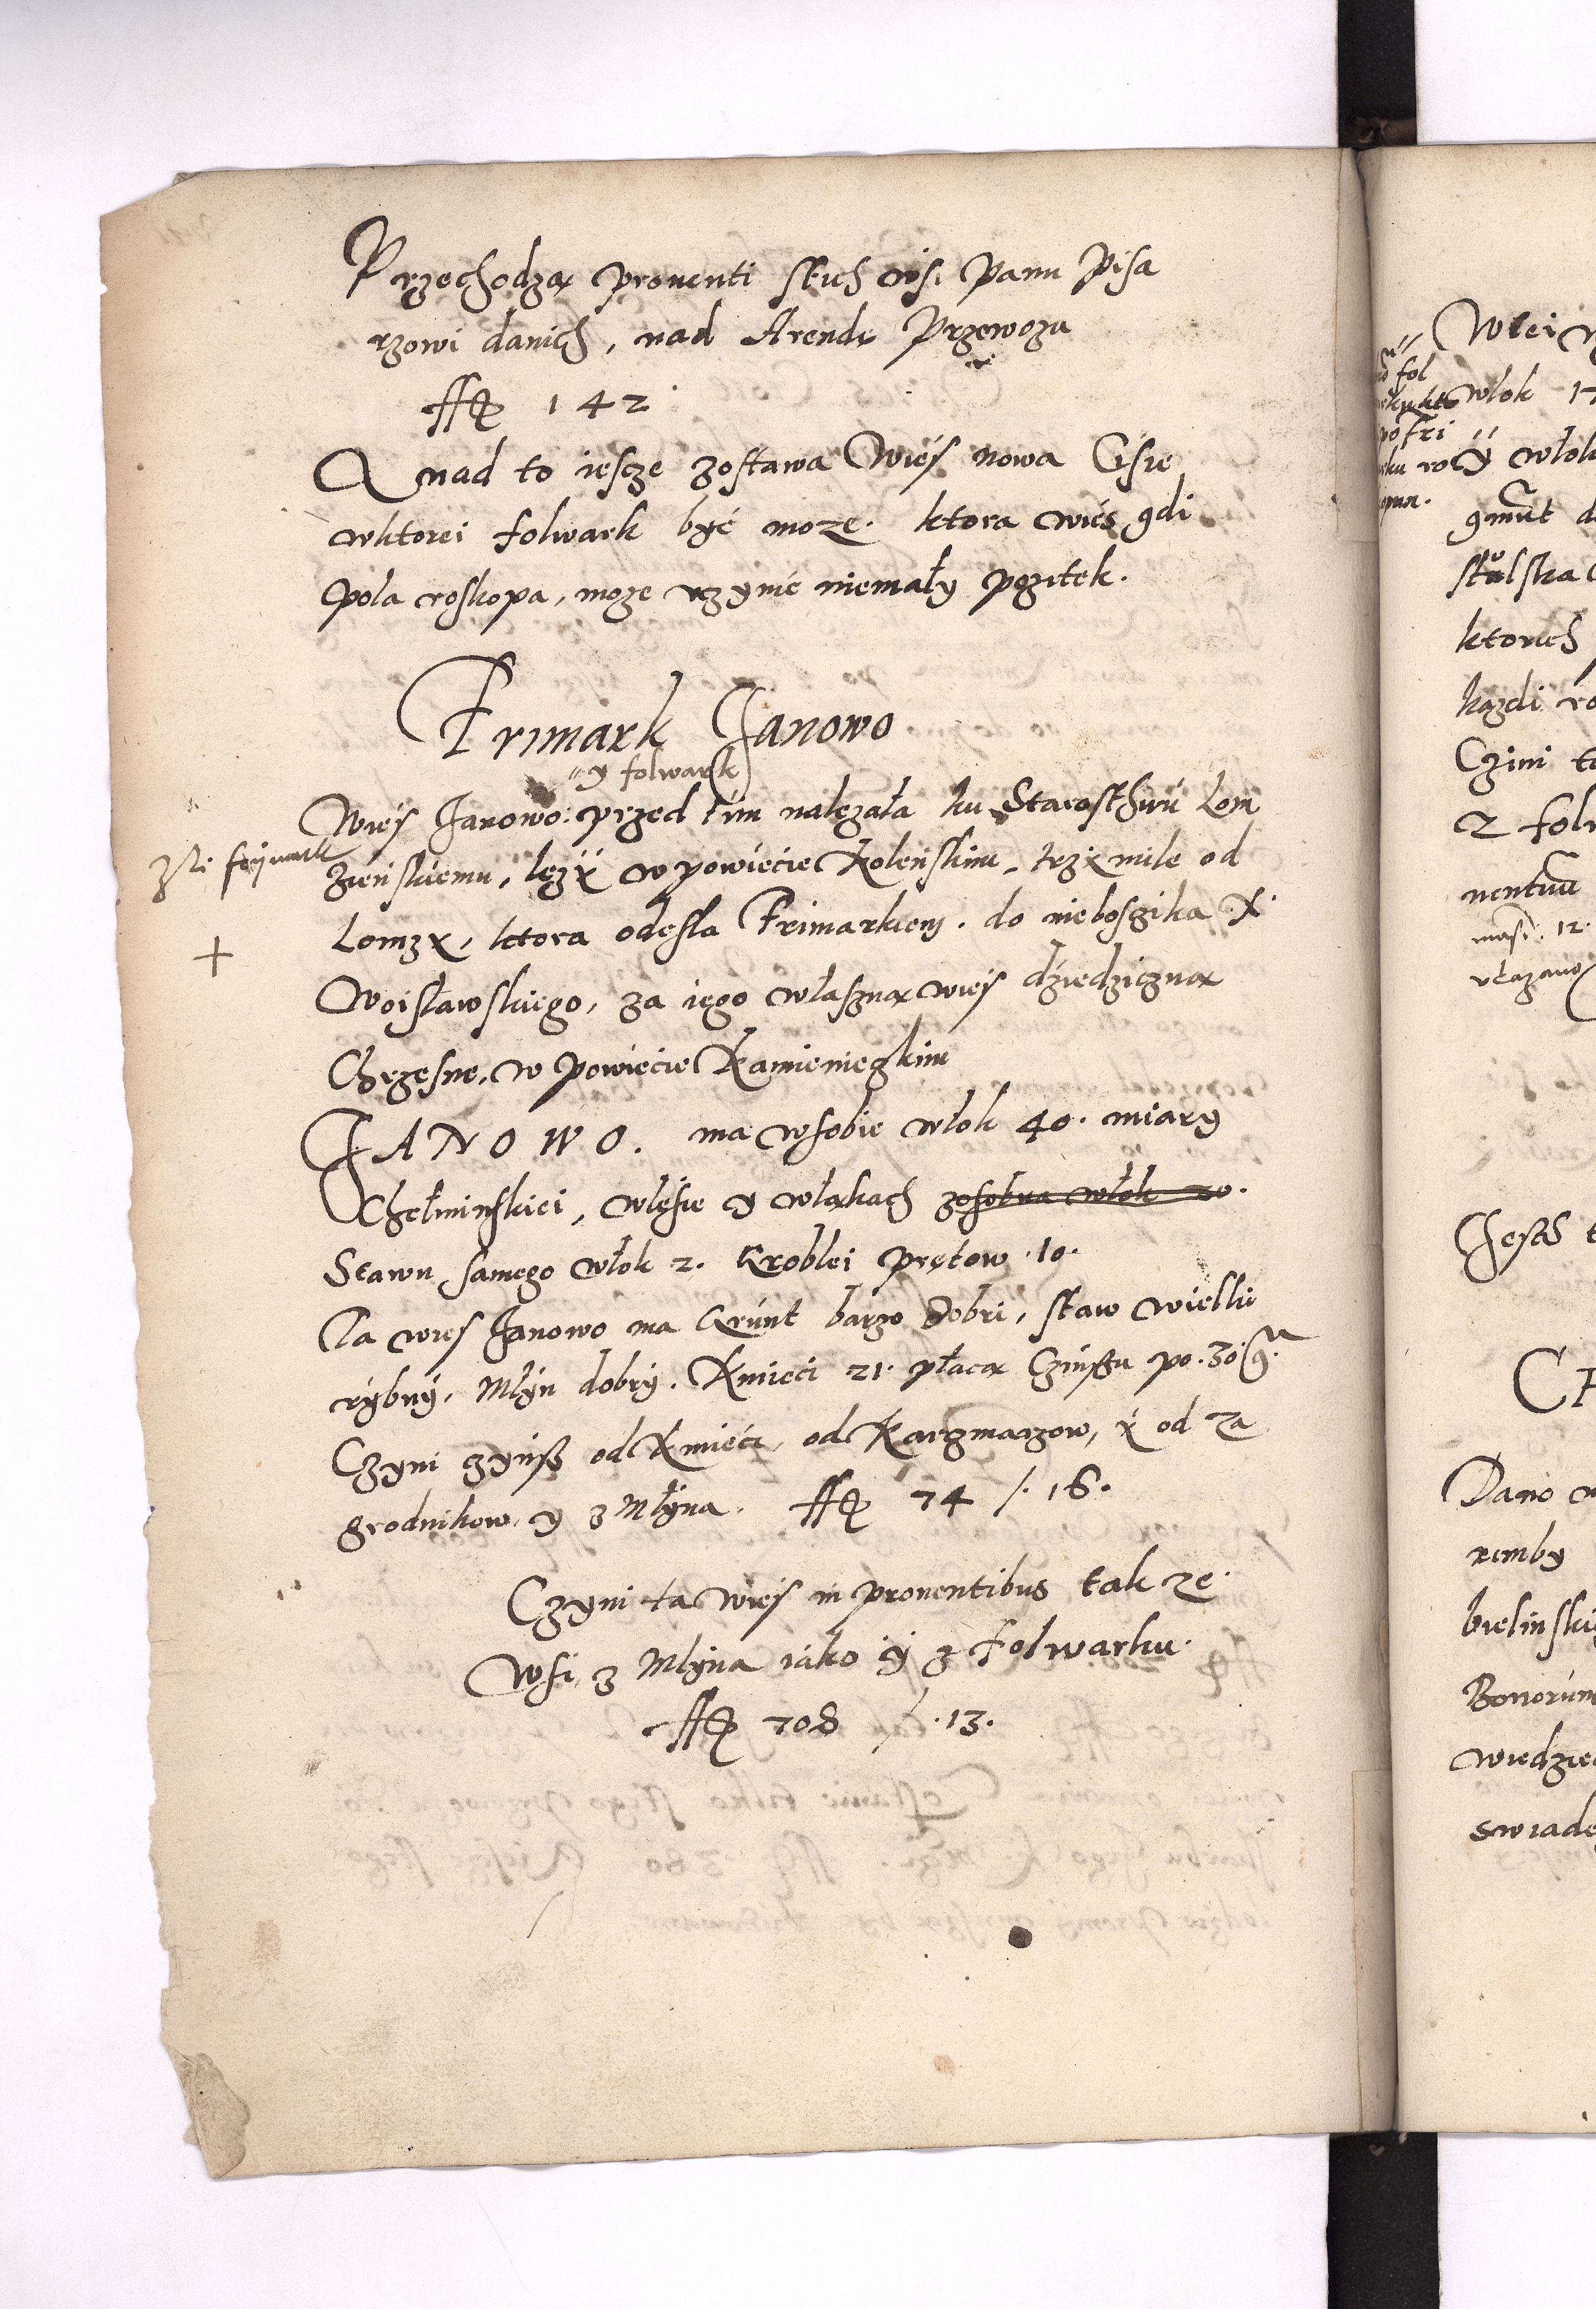 Przechodzą prouenti stich wsi Panu Pisa
rzowi danich, nad Arendę Przewoza
fl 142
A nad to iescze zostawa Wieś nowa Cisie
wktorei folwark być może. ktora wieś gdi
pola roskopa, może uczynić niemały pożitek.
Frimark Janowo
y folwark
Wieś Janowo przed tim nalezała ku Starosthwu Lom
żieńskiemu, leży w powiecie Koleńskim, trzy mile od
Lomży, ktora odesła Frimarkiem. do nieboszika X
Woisławskiego, za iego właszną wieś dziedziczną
Chrzęsne, w Powiecie Kamienieczkim
frymark
+
JANOWO. ma wsobie włok 40. miary
Chełminskiei, wlesie y włąkach zosobna włok 20.
Stawu samego włok 2. Groblei prętow 10.
Ta wies Janowo ma Grunt barzo Dobri, staw wielki
rybny, Młyn dobry. Kmieci 21. płacą Czinszu po 30 g
Czyni czynsz od Kmieci, od Karczmarzow, y od Za
grodnikow, y z Młyna. fl 74 /. 16.
Czyni ta wieś in prouentibus tak ze
Wsi, z Młyna iako y z Folwarku
fl 708 /. 13.
Wtei
fol
włok 17
y włok
ktorich
każdi
Czini
2 fol
12.
Dano
Bonorum